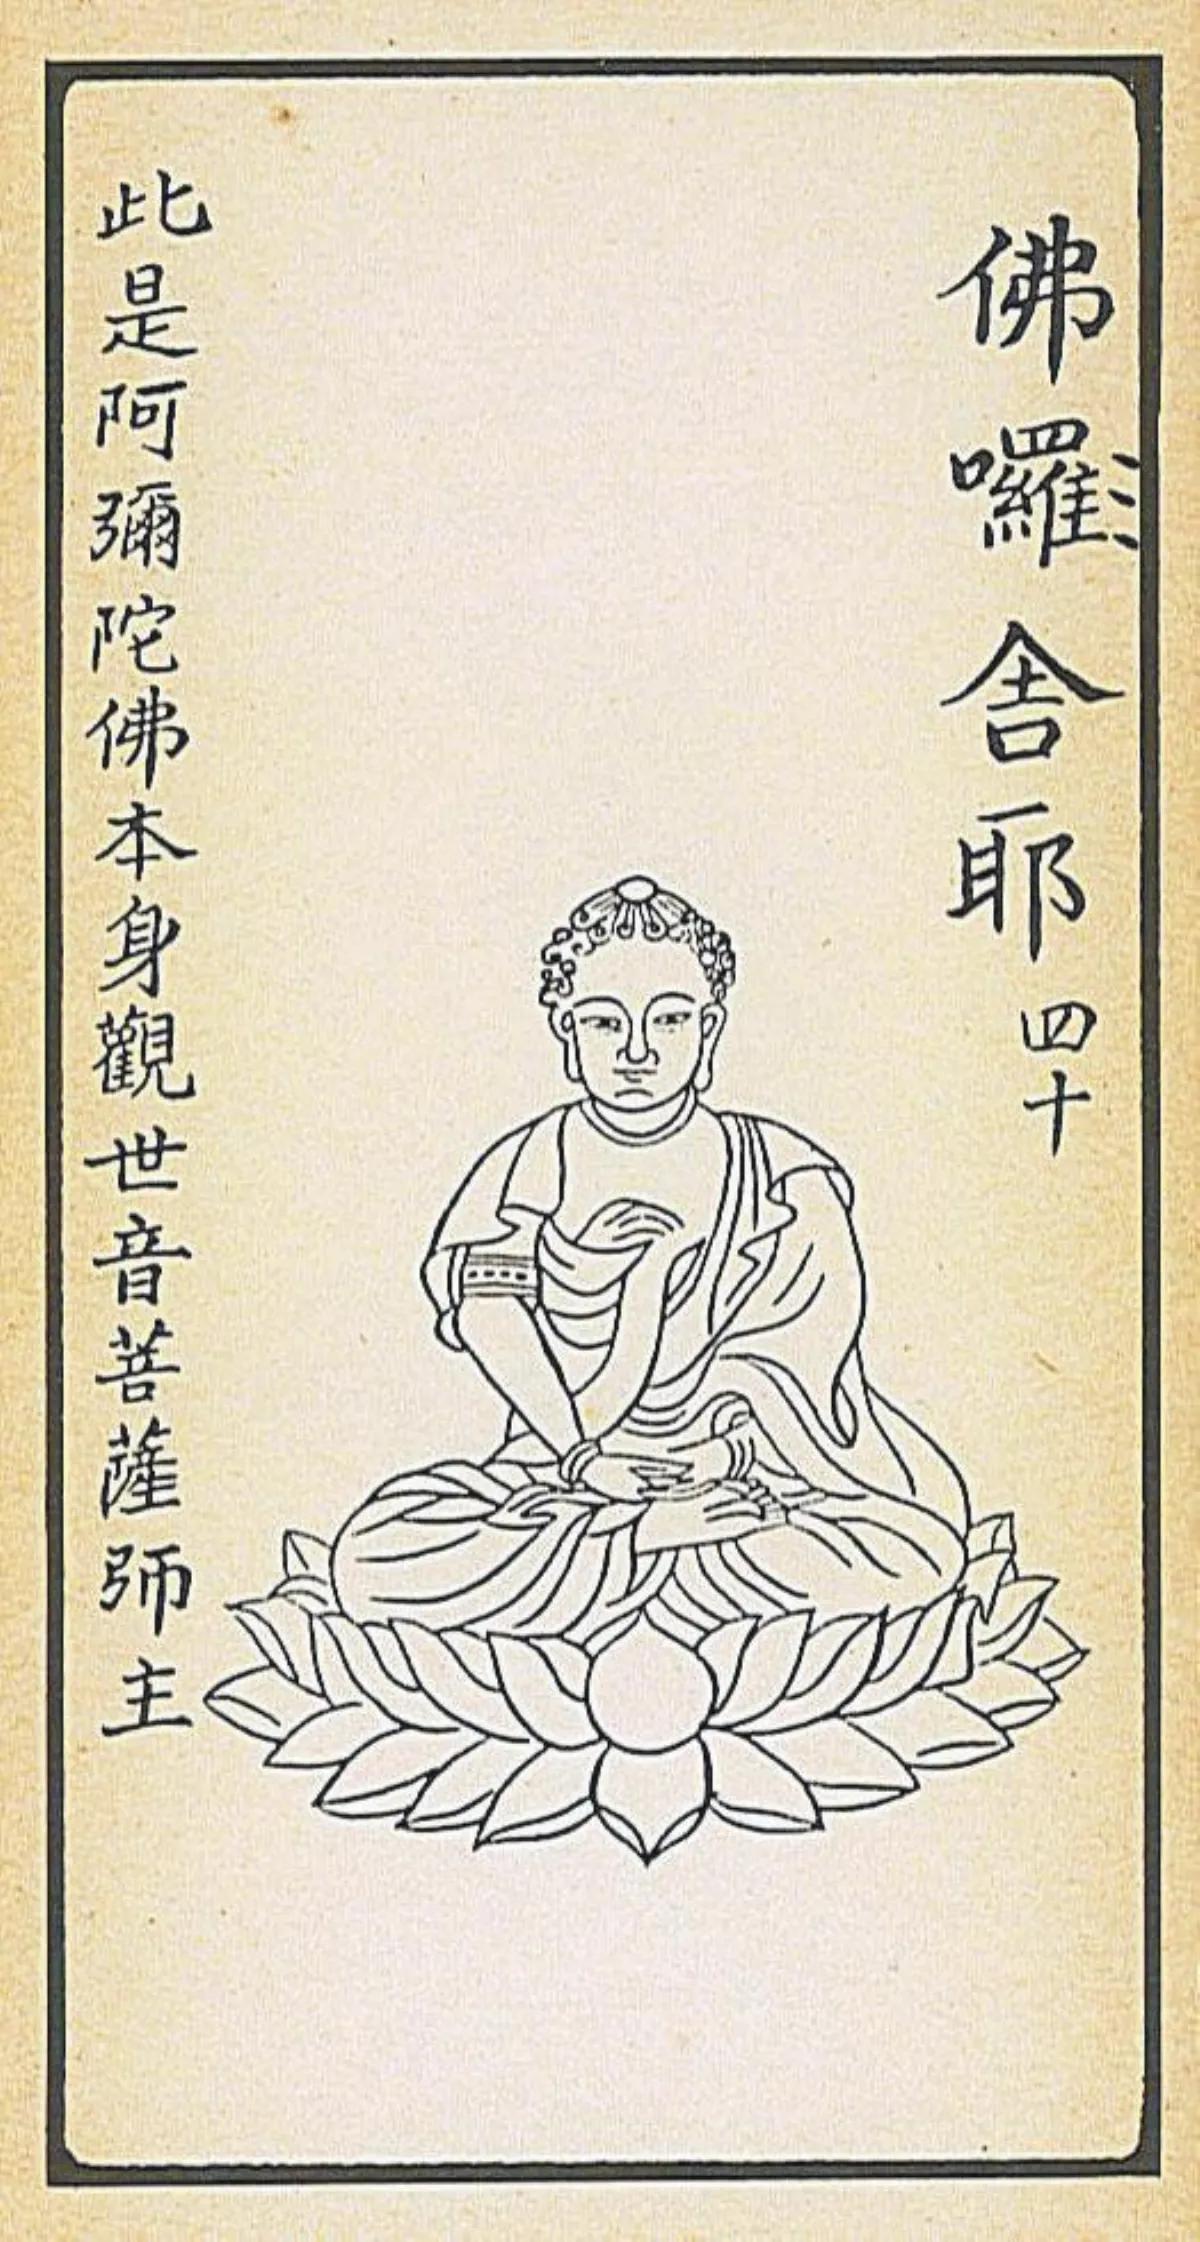 佛囉舍耶 四十
此是阿彌陀佛本身觀世音菩薩師主